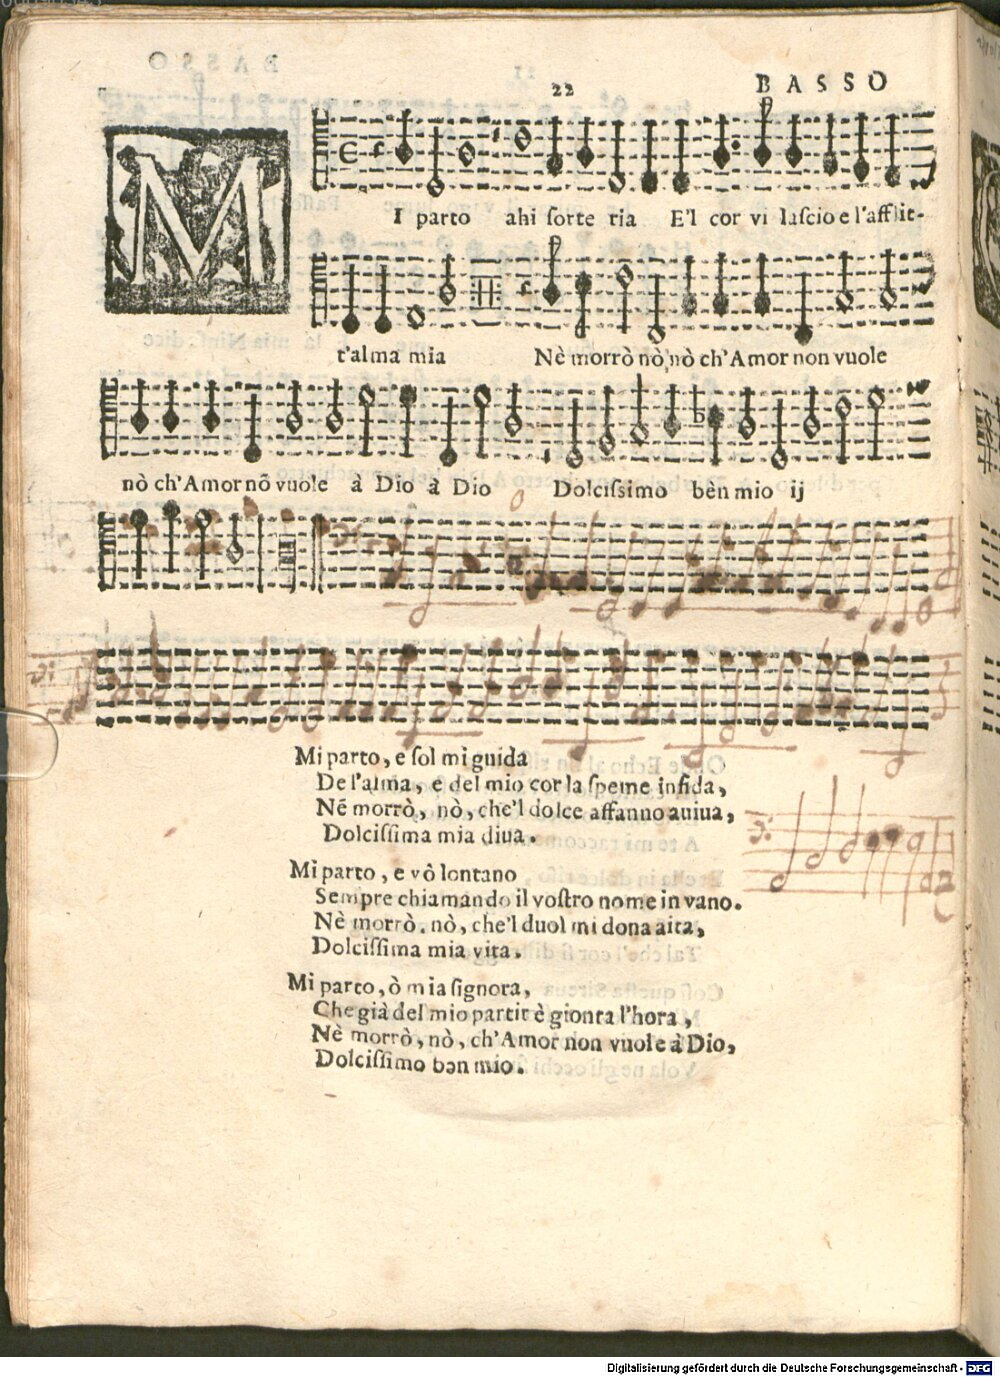 22
BASSO
MI parto ahi sorte ria E'l cor vi lascio e l'afflit-
t'alma mia Nè morrò nò, nò ch'Amor non vuole
nò ch'Amor nõ vuole à Dio à Dio Dolcissimo ben mio ij
Mi parto, e sol mi guida
De l'alma, e del mio cor la speme infida,
Nè morrò, nò, che'l dolce affanno auiua,
Dolcissima mia diua.
Mi parto, e vò lontano
Sempre chiamando il vostro nome in vano.
Nè morrò, nò, che'l duol mi dona aita,
Dolcissima mia vita.
Mi parto, ò mia signora,
Che già del mio partir è gionta l'hora,
Nè morrò, nò, ch'Amor non vuole à Dio,
Dolcissimo ben mio.
Digitalisierung gefördert durch die Deutsche Forschungsgemeinschaft - DFG